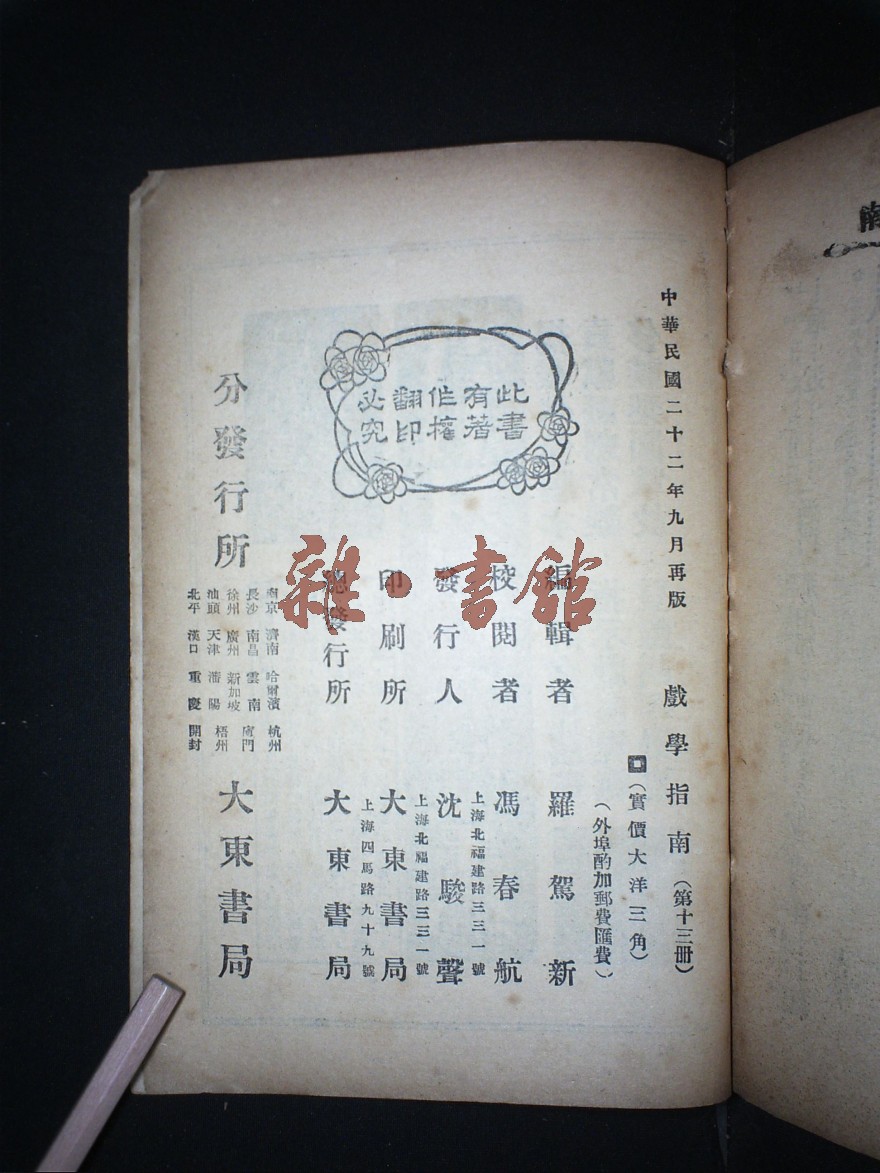 南
中華民國二十二年九月再版
戲學指南(第十三册)
(實價大洋三角)
(外埠酌加郵費匯費)
此書
有著
作權
翻印
必究
編輯者 羅駕新
校閱者 馮春航
上海北福建路三三一號
發行人 沈駿聲
上海北福建路三三一號
印刷所 大東書局
上海四馬路九十九號
總發行所 大東書局
分發行所
南京 濟南 哈爾濱 杭州
長沙 南昌 雲南 廈門
徐州 廣州 新加坡 梧州
汕頭 天津 瀋陽
北平 漢口 重慶 開封
大東書局
雜·書館